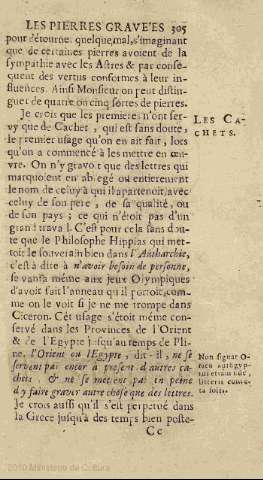 LES PIERRES GRAVE'ES 305
pour détourner quelque mal, s'imaginant
que de certaines pierres avoient de la
sympathie avec les Astres & par conse-
quent des vertus conformes à leur in-
fluences. Ainsi Monsieur on peut distin-
guer de quatre on cinq sortes de pierres.
Je crois que les premieres n'ont ser-
vy que de Cachet, qui est sans doute,
le premier usage qu'on en ait fait, lors
qu'on a commencé à les mettre en œu-
vre. On n'y gravoit que des lettres qui
marquoient en abregé ou entierement
le nom de celuy à qui il apartenoit, avec
celuy de son pere, de sa qualité, ou
de son pays; ce qui n'étoit pas d'un
grand travail. C'est pour cela sans dou-
te que le Philosophe Hippias qui met-
toit le souverain bien dans l'Autharchie,
c'est à dire à n'avoir besoin de personne,
se vanta même aux Jeux Olympiques
d'avoit fait l'anneau qu'il portoit, com-
me on le voit si je ne me trompe dans
Ciceron. Cét usage s'étoit même con-
servé dans les Provinces de l'Orient
& de l'Egypte jusqu'au temps de Pli-
ne. l'Orient ou l'Egypte, dit-il, ne se
servent pas encor à present d'autres ca-
chets, & ne se mettent pas en peine
d'y faire graver autre chose que des lettres.
Je crois aussi qu'il s'est perpetué dans
la Grece jusqu'à des temps bien poste-
Cc
LES CA-
CHETS.
Non signat O-
riens aut Ægyp-
tus etiam nũc,
litteris conten-
ta solis.
2010 Ministerio de Cultura